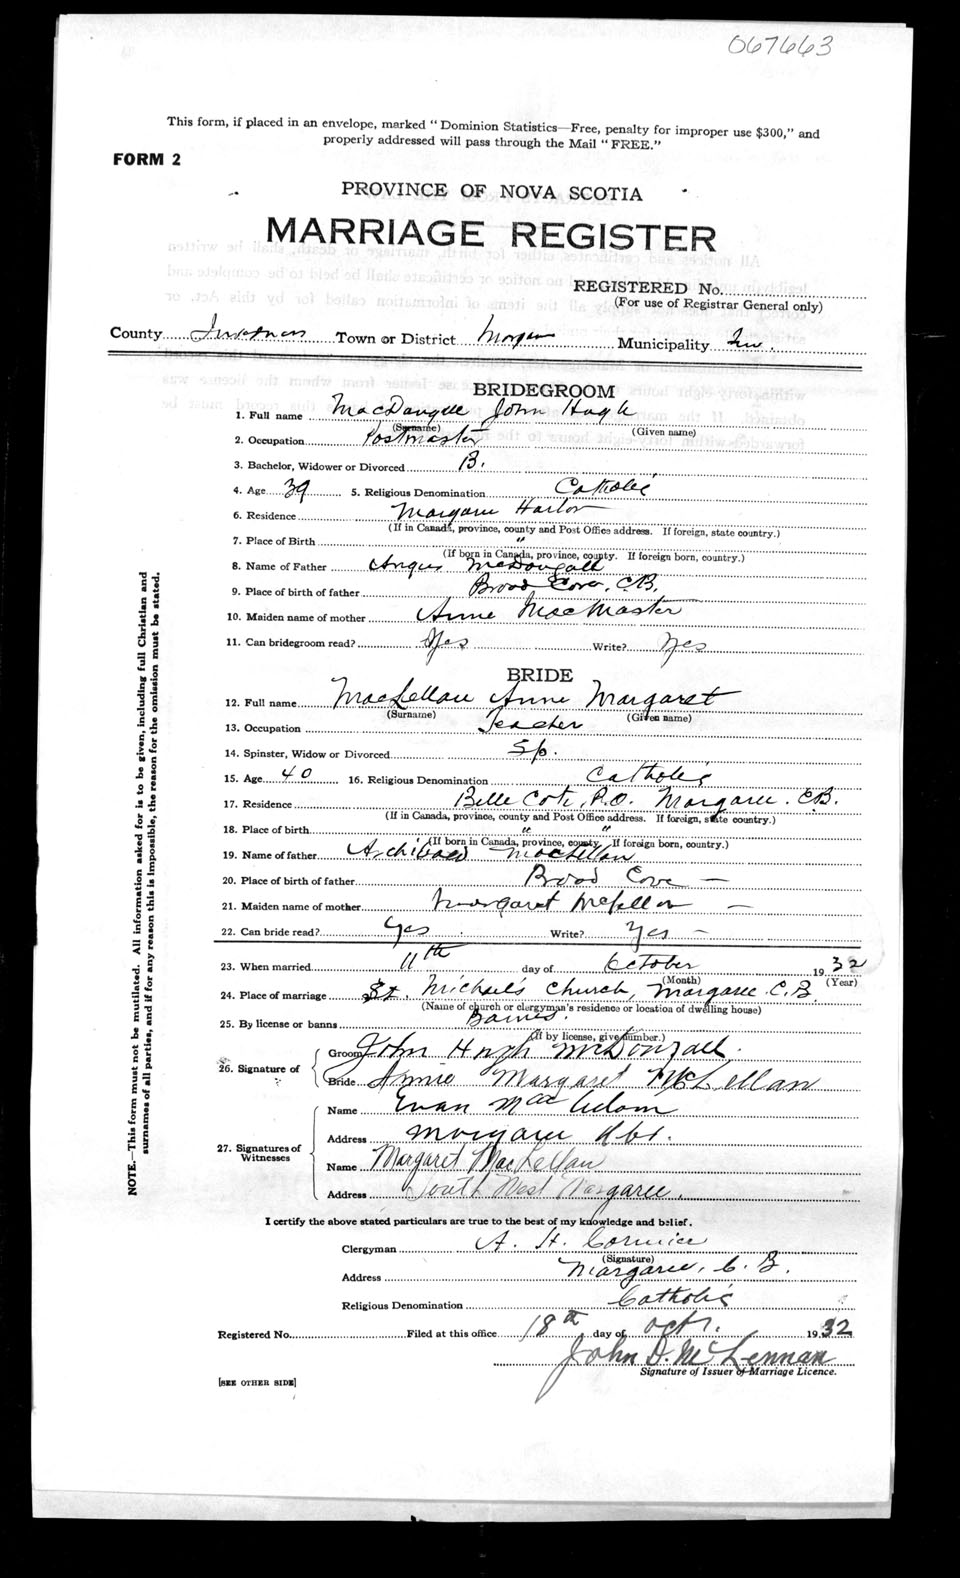 067663
This form, if placed in an envelope, marked "Dominion Statistics—Free, penalty for improper use $300," and
properly addressed will pass through the Mail "FREE."
FORM 2
PROVINCE OF NOVA SCOTIA
MARRIAGE REGISTER
REGISTERED No.
(For use of Registrar General only)
County Inverness Town or District Margaree Municipality Inv.
BRIDEGROOM
1. Full name MacDougall John Hugh
(Surname) (Given name)
2. Occupation Postmaster
3. Bachelor, Widower or Divorced B.
4. Age 39 5. Religious Denomination Catholic
6. Residence Margaree Harbor
(If in Canada, province, county and Post Office address. If foreign, state country.)
7. Place of Birth "
(If born in Canada, province, county. If foreign born, country.)
8. Name of Father Angus McDougall
9. Place of birth of father Broad Cove, C.B.
10. Maiden name of mother Anne MacMaster
11. Can bridegroom read? Yes Write? Yes
BRIDE
12. Full name MacLellan Anne Margaret
(Surname) (Given name)
13. Occupation Teacher
14. Spinster, Widow or Divorced Sp.
15. Age 40 16. Religious Denomination Catholic
17. Residence Belle Cote, P.O. Margaree. C.B.
(If in Canada, province, county and Post Office address. If foreign, state country.)
18. Place of birth " "
(If born in Canada, province, county. If foreign born, country.)
19. Name of father Archibald MacLellan
20. Place of birth of father Broad Cove —
21. Maiden name of mother Margaret McLellan —
22. Can bride read? Yes Write? Yes —
23. When married 11th day of October 1932
(Month) (Year)
24. Place of marriage St. Michael's Church, Margaree C.B.
(Name of church or clergyman's residence or location of dwelling house)
25. By license or banns Banns
(If by license, give number.)
26. Signature of
Groom John Hugh McDougall.
Bride Annie Margaret McLellan
27. Signatures of Witnesses
Name Evan MacAdam
Address Margaree Hbr.
Name Margaret MacLellan
Address South West Margaree.
I certify the above stated particulars are true to the best of my knowledge and belief.
Clergyman A. H. Cormier
(Signature)
Address Margaree, C. B.
Religious Denomination Catholic
Registered No. Filed at this office 18th day of Oct. 1932
John D. McLennan
Signature of Issuer of Marriage Licence.
[SEE OTHER SIDE]
NOTE.—This form must not be mutilated. All information asked for is to be given, including full Christian and
surnames of all parties, and if for any reason this is impossible, the reason for the omission must be stated.